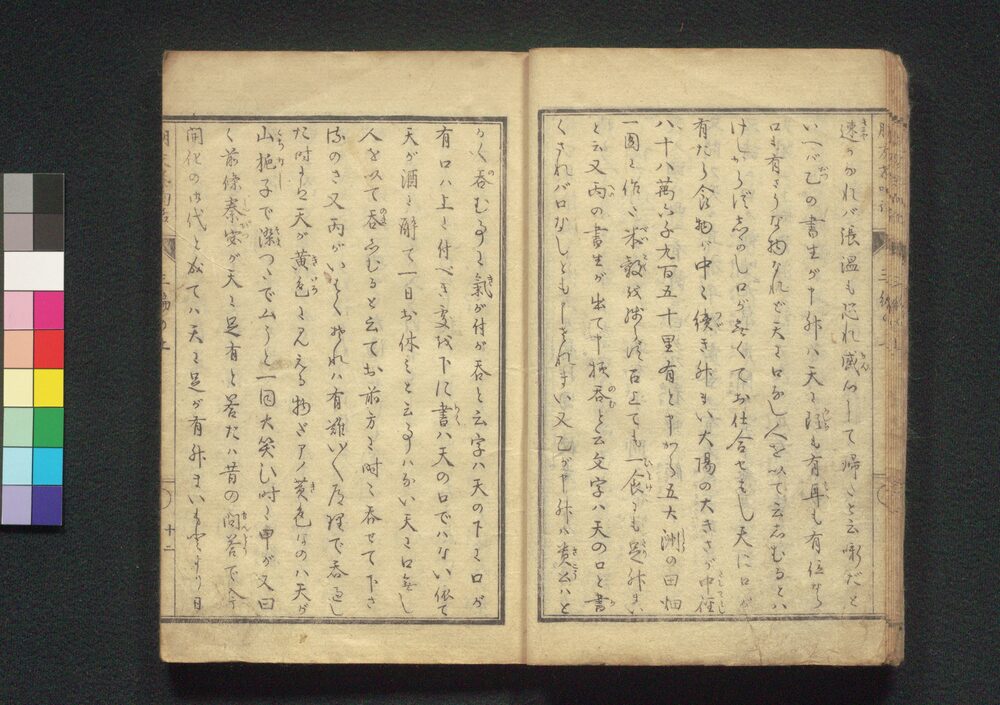 速かれバ張温も恐れ感心して帰つたと云噺だと
いへバ乙の書生が申升ハ天に頭も有耳も有位なら
口も有さうな物なれど天に口なし人を以て云しむるとハ
けしからぬ
有たら食物が中々続き升まい大陽の大きさが中径
八十八萬六千九百五十里有と申から五大洲の田畑
一圓に作た米穀を残らず召上ても一飧にも足升まい
と云又丙の書生が出て申様呑と云文字ハ天の口と書
くされバ口なしとも申されまい又乙が申升ハ貴公ハと
かく呑む事に氣が付が呑と云字ハ天の下に口が
有口ハ上に付べき更を下に書ハ天の口でハない依て
天が酒に酔て一日お休みと云事ハない天に口無し
人を以て呑しむると云てお前方に時々呑せて下さ
るのさ又丙がいはくそれハ有難いく道理で呑過し
た時にハ天が黄色にみえる物だアノ黄色なのハ天が
山梔子で染つたでムらうと一同大笑ひ時に甲が又曰
く前條秦宓が天に足有と答たハ昔の問答で今
開化の御代と成てハ天に足が有升まいもとより日
三編の上
十二